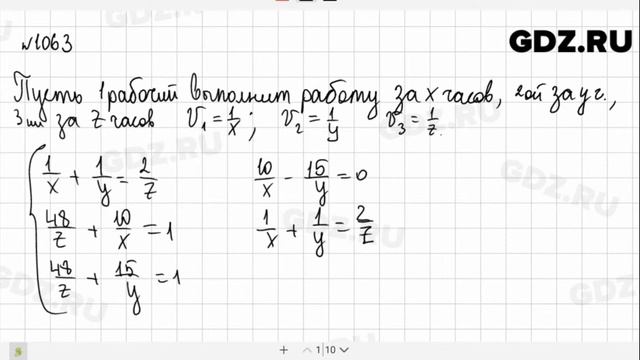 №1063
GDZ.RU
Пусть 1 рабочий выполнит работу за x часов, 2ой за y ч.,
3ий за z часов V₁ = 1/x ; V₂ = 1/y V₃ = 1/z.
1/x + 1/y = 2/z
48/z + 10/x = 1
48/z + 15/y = 1
10/x - 15/y = 0
1/x + 1/y = 2/z
1|10